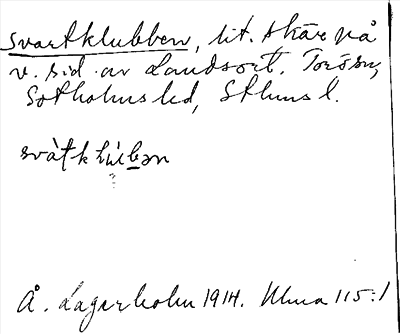 Svartklubben, lit. skär på
v. sid. av Landsort. Torö sn,
Sotholms hd, Sthms l.
svàtklùbən
Å. Lagerholm 1914. Ulma 115:1